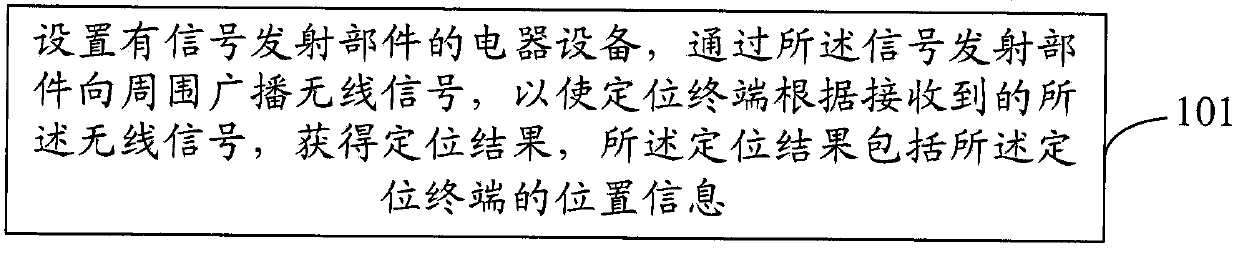 设置有信号发射部件的电器设备，通过所述信号发射部
件向周围广播无线信号，以使定位终端根据接收到的所
述无线信号，获得定位结果，所述定位结果包括所述定
位终端的位置信息
101